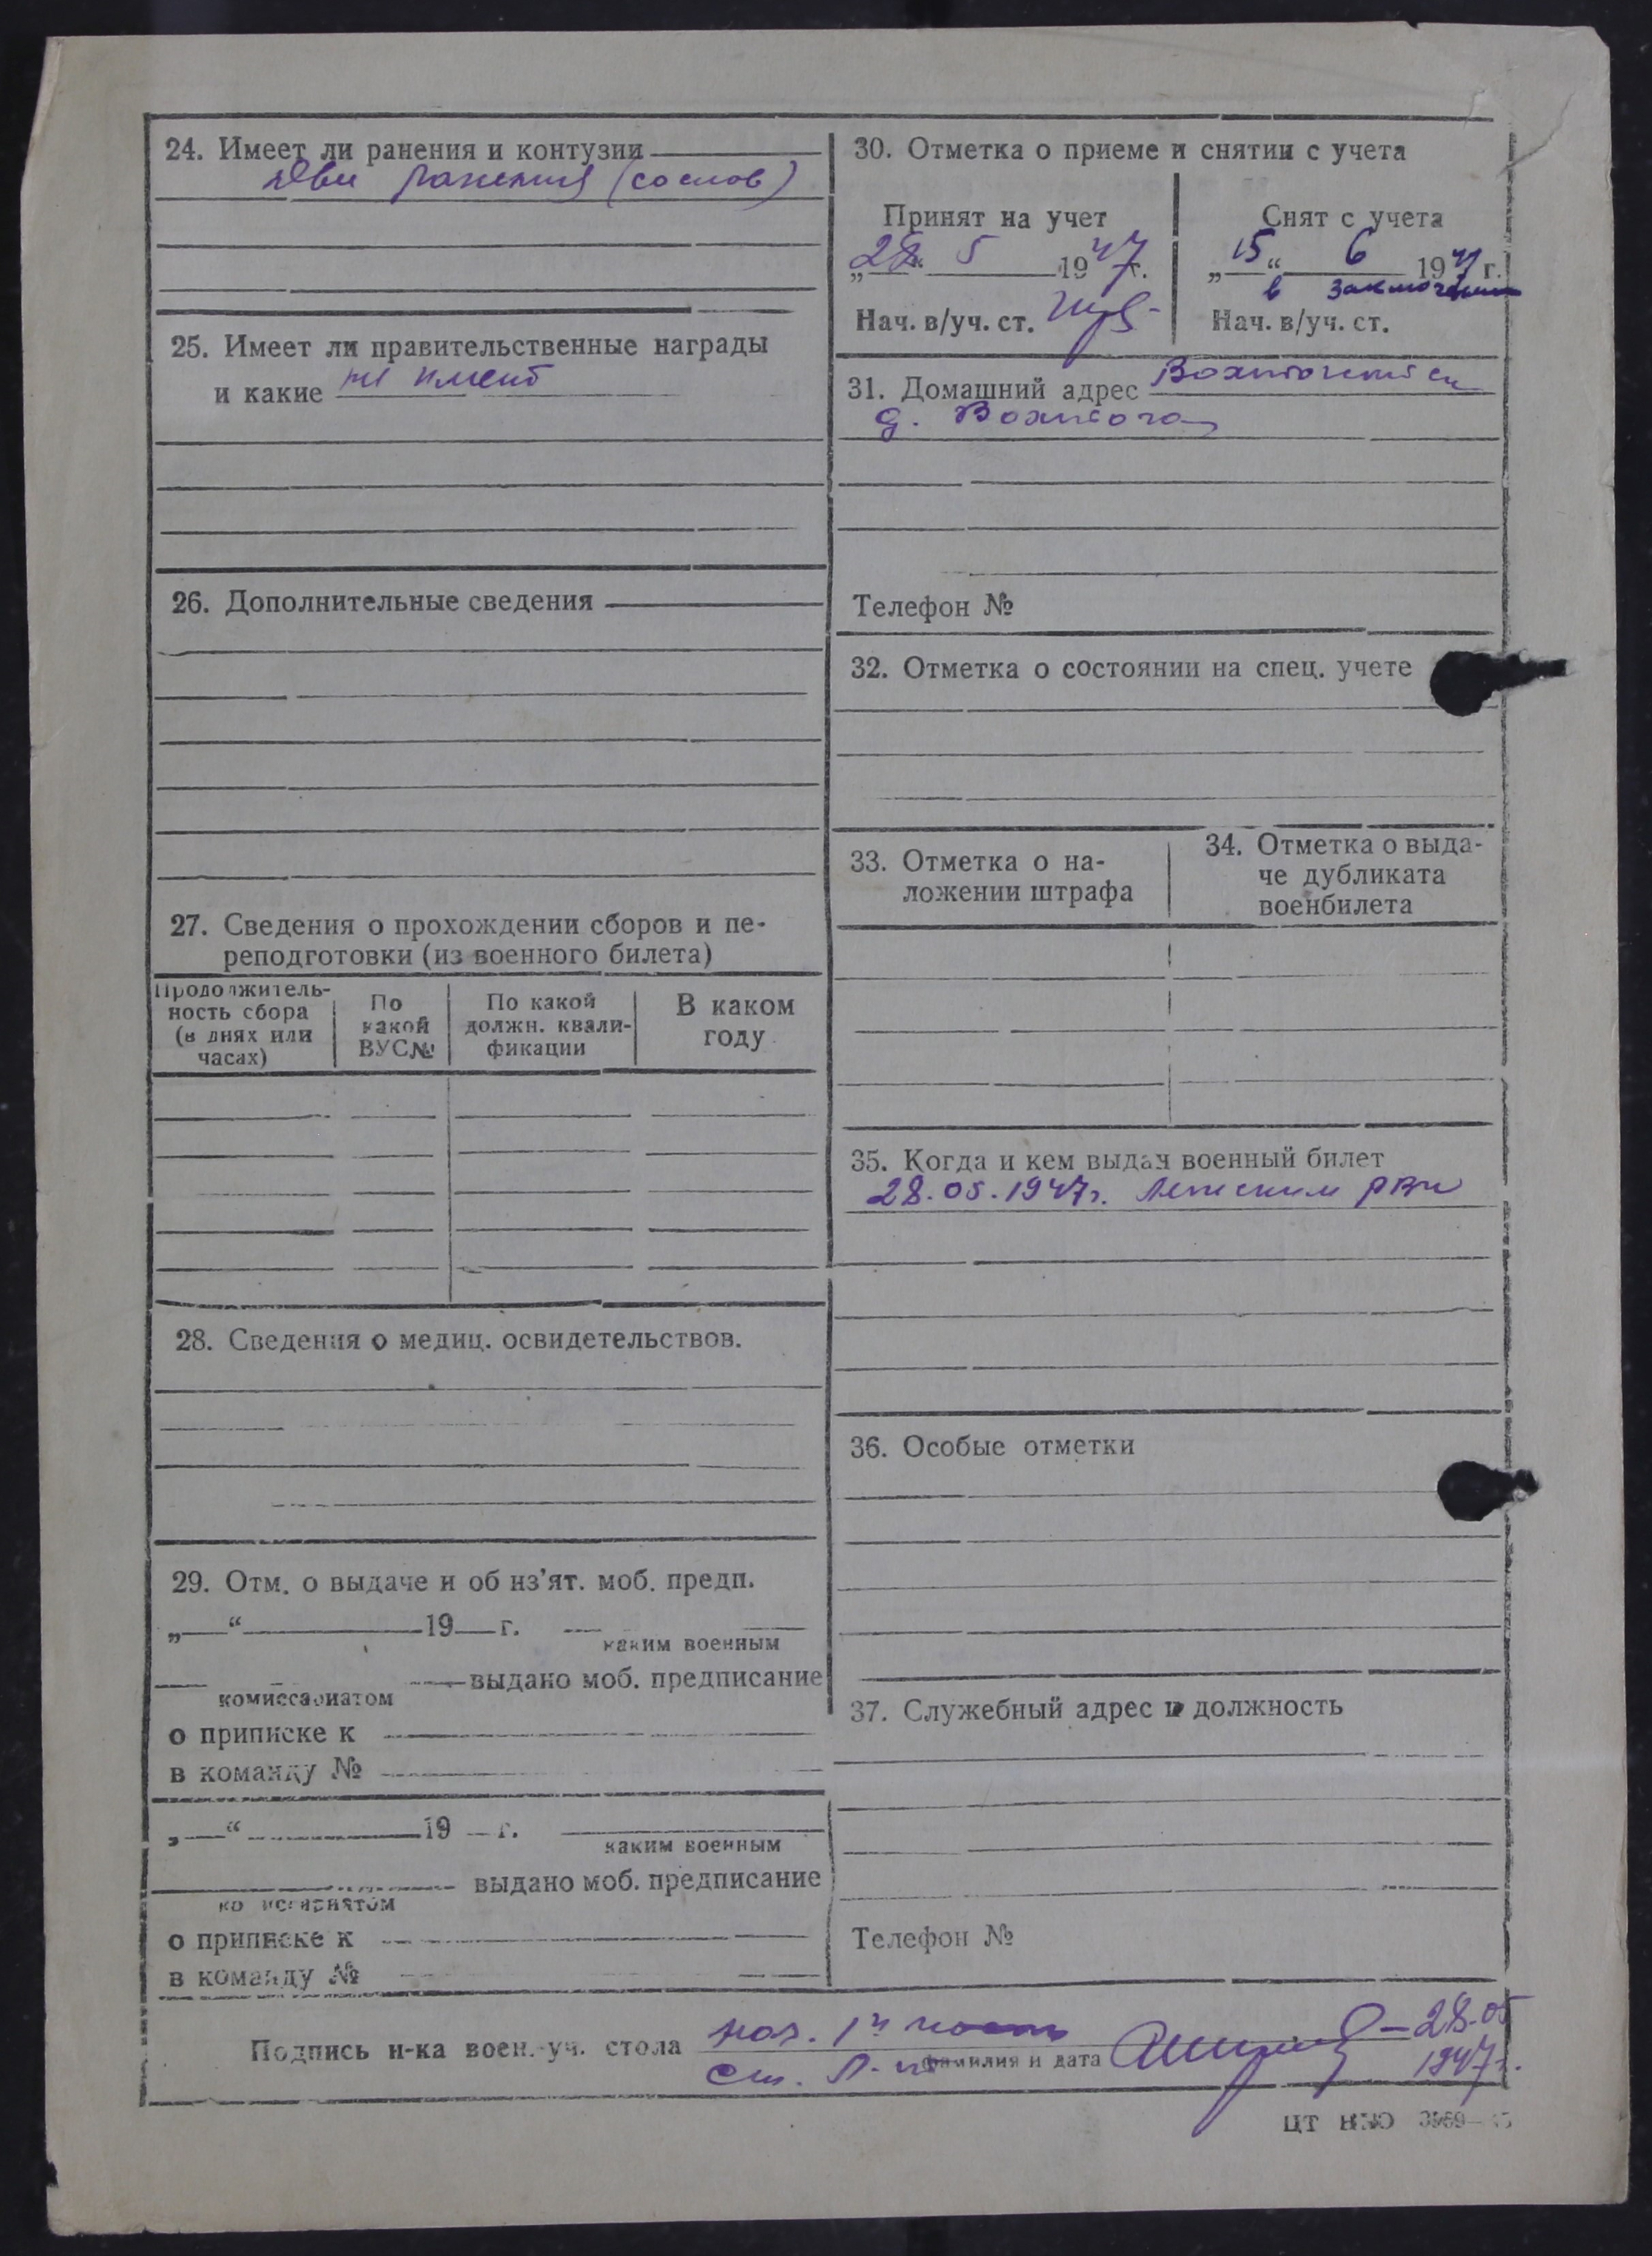 24. Имеет ли ранения и контузии
Два ранения (со слов)
25. Имеет ли правительственные награды
и какие не имеет
26. Дополнительные сведения
27. Сведения о прохождении сборов и пе-
реподготовки (из военного билета)
Продолжитель-
ность сбора
(в днях или
часах)
По
какой
ВУС№
По какой
должн. квали-
фикации
В каком
году
28. Сведения о медиц. освидетельствов.
29. Отм. о выдаче и об из’ят. моб. предп.
„ “ 19 г.
каким военным
выдано моб. предписание
комиссариатом
о приписке к
в команду №
„ “ 19 г.
каким военным
выдано моб. предписание
комиссариатом
о приписке к
в команду №
30. Отметка о приеме и снятии с учета
Принят на учет
„28“ 5 1947 г.
Нач. в/уч. ст.
Снят с учета
„15“ 6 1947 г.
в заключении
Нач. в/уч. ст.
31. Домашний адрес
д. Вохтога
Телефон №
32. Отметка о состоянии на спец. учете
33. Отметка о на-
ложении штрафа
34. Отметка о выда-
че дубликата
военбилета
35. Когда и кем выдан военный билет
28.05.1947г. РВК
36. Особые отметки
37. Служебный адрес и должность
Телефон №
Подпись н-ка воен.-уч. стола нач. 1й части
ст. л-т фамилия и дата 28.05
1947г.
ЦТ НКО